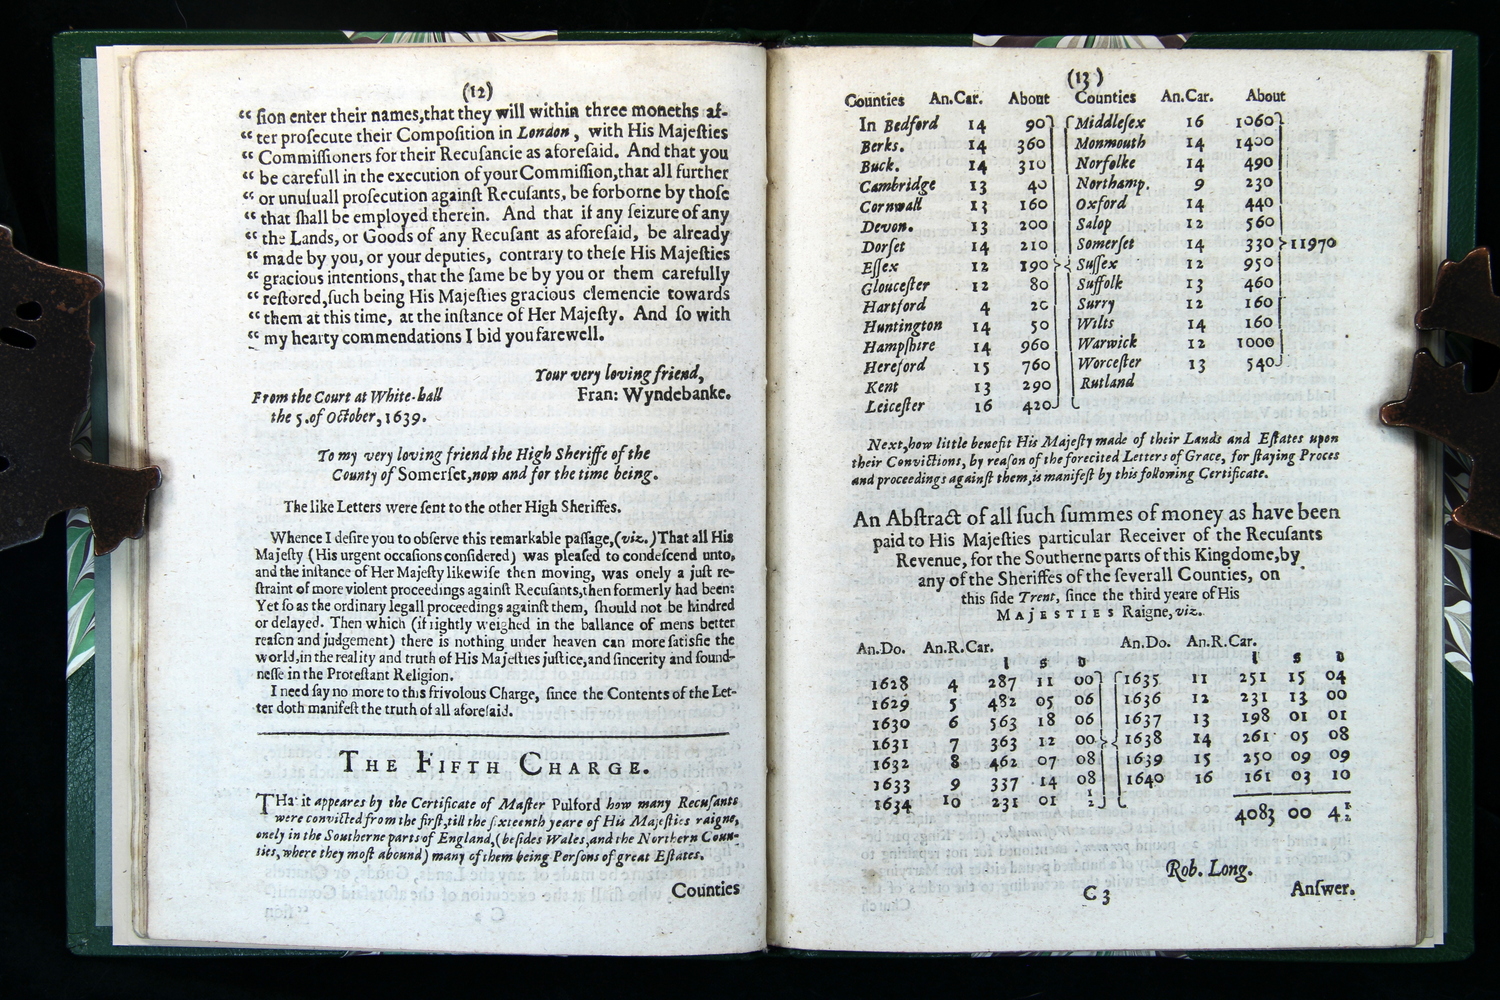 (12)
“ ſion enter their names,that they will within three moneths af-
“ ter proſecute their Compoſition in London , with His Majeſties
“ Commiſſioners for their Recuſancie as aforeſaid. And that you
“ be carefull in the execution of your Commiſſion,that all further
“ or unuſuall proſecution againſt Recuſants, be forborne by thoſe
“ that ſhall be employed therein. And that if any ſeizure of any
“ the Lands, or Goods of any Recuſant as aforeſaid, be already
“ made by you, or your deputies, contrary to theſe His Majeſties
“ gracious intentions, that the ſame be by you or them carefully
“ reſtored,ſuch being His Majeſties gracious clemencie towards
“ them at this time, at the inſtance of Her Majeſty. And ſo with
“ my hearty commendations I bid you farewell.
Your very loving friend,
From the Court at White-hall Fran: Wyndebanke.
the 5.of October, 1639.
To my very loving friend the High Sheriffe of the
County of Somerſet,now and for the time being.
The like Letters were ſent to the other High Sheriffes.
Whence I deſire you to obſerve this remarkable paſſage,(viz.) That all His
Majeſty (His urgent occaſions conſidered) was pleaſed to condeſcend unto,
and the inſtance of Her Majeſty likewiſe then moving, was onely a juſt re-
ſtraint of more violent proceedings againſt Recuſants,then formerly had been:
Yet ſo as the ordinary legall proceedings againſt them, ſhould not be hindred
or delayed. Then which (if rightly weighed in the ballance of mens better
reaſon and judgement) there is nothing under heaven can more ſatisfie the
world,in the reality and truth of His Majeſties juſtice,and ſincerity and ſound-
neſſe in the Proteſtant Religion.
I need ſay no more to this frivolous Charge, ſince the Contents of the Let-
ter doth manifeſt the truth of all aforeſaid.
THE FIFTH CHARGE.
THat it appeares by the Certificate of Maſter Pulford how many Recuſants
were convicted from the firſt,till the ſixteenth yeare of His Majeſties raigne,
onely in the Southerne parts of England,(beſides Wales,and the Northern Coun-
ties,where they moſt abound) many of them being Perſons of great Eſtates.
Counties
(13)
Counties An.Car. About Counties An.Car. About
In Bedford 14 90 Middleſex 16 1060
Berks. 14 360 Monmouth 14 1400
Buck. 14 310 Norfolke 14 490
Cambridge 13 40 Northamp. 9 230
Cornwall 13 160 Oxford 14 440
Devon. 13 200 Salop 12 560
Dorſet 14 210 Somerſet 14 330 11970
Eſſex 12 190 Suſſex 12 950
Glouceſter 12 80 Suffolk 13 460
Hartford 4 20 Surry 12 160
Huntington 14 50 Wilts 14 160
Hampſhire 14 960 Warwick 12 1000
Hereford 15 760 Worceſter 13 540
Kent 13 290 Rutland
Leiceſter 16 420
Next,how little benefit His Majeſty made of their Lands and Eſtates upon
their Convictions, by reaſon of the forecited Letters of Grace, for ſtaying Proces
and proceedings againſt them,is manifeſt by this following Certificate.
An Abſtract of all ſuch ſummes of money as have been
paid to His Majeſties particular Receiver of the Recuſants
Revenue, for the Southerne parts of this Kingdome,by
any of the Sheriffes of the ſeverall Counties, on
this ſide Trent, ſince the third yeare of His
MAJESTIES Raigne,viz.
An.Do. An.R.Car. An.Do. An.R.Car.
l s D l s D
1628 4 287 11 00 1635 11 251 15 04
1629 5 482 05 06 1636 12 231 13 00
1630 6 563 18 06 1637 13 198 01 01
1631 7 363 12 00 1638 14 261 05 08
1632 8 462 07 08 1639 15 250 09 09
1633 9 337 14 08 1640 16 161 03 10
1634 10 231 01 ½
4083 00 4½
Rob. Long.
C 3 Anſwer.